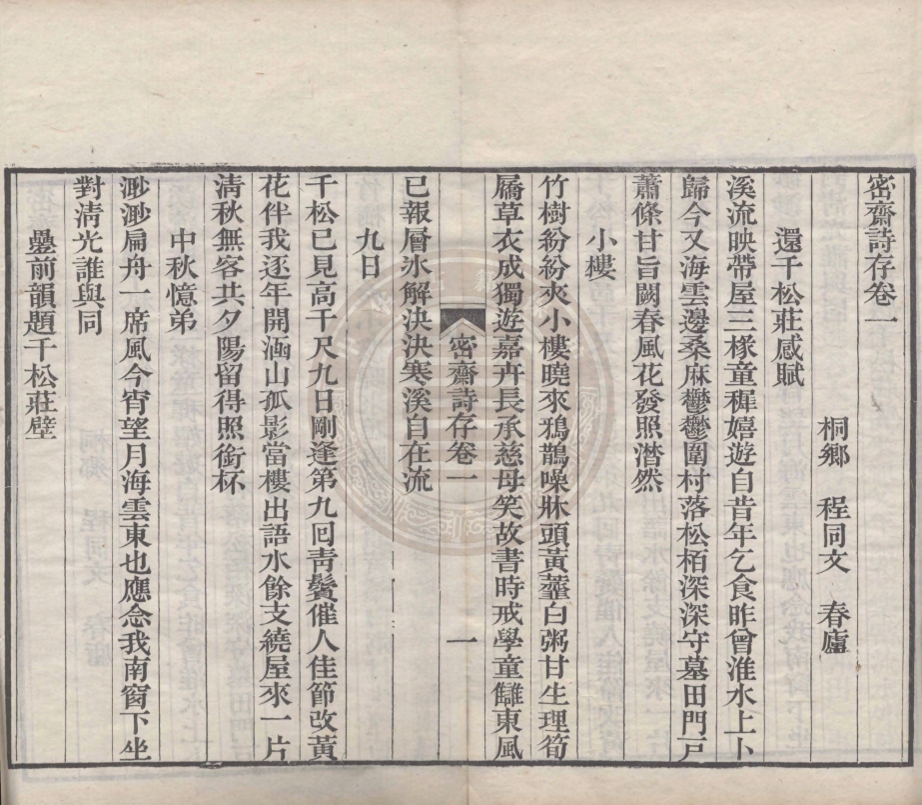 密齋詩存卷一
桐鄉　程同文　春廬
還千松莊感賦
溪流映帶屋三椽童穉嬉遊自昔年乞食昨曾淮水上卜
歸今又海雲邊桑麻鬱鬱圍村落松栢深深守墓田門戸
蕭條甘旨闕春風花發照潸然
小樓
竹樹紛紛夾小樓曉來鴉鵲噪牀頭黃虀白粥甘生理筍
屩草衣成獨遊嘉卉長承慈母笑故書時戒學童讎東風
已報層氷解決決寒溪自在流
密齋詩存卷一
一
九日
千松已見高千尺九日剛逢第九囘靑鬢催人佳節改黃
花伴我逐年開涵山孤影當樓出語水餘支繞屋來一片
淸秋無客共夕陽留得照銜杯
中秋憶弟
渺渺扁舟一席風今宵望月海雲東也應念我南窗下坐
對淸光誰與同
疊前韻題千松莊壁